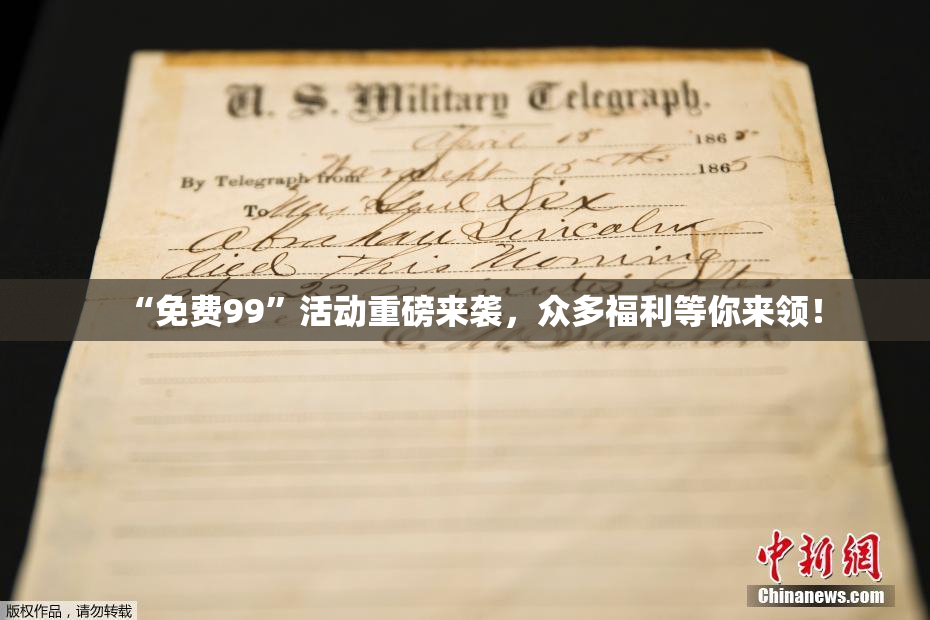 U. S. Military Telegraph.
April 15 1865
By Telegraph from War Dept 15th 1865
To Maj Genl Dix
Abraham Lincoln
died This Morning
at 22 minutes after
“免费99”活动重磅来袭，众多福利等你来领！
E. M. Stanton
中新網
Chinanews.com
版权作品，请勿转载